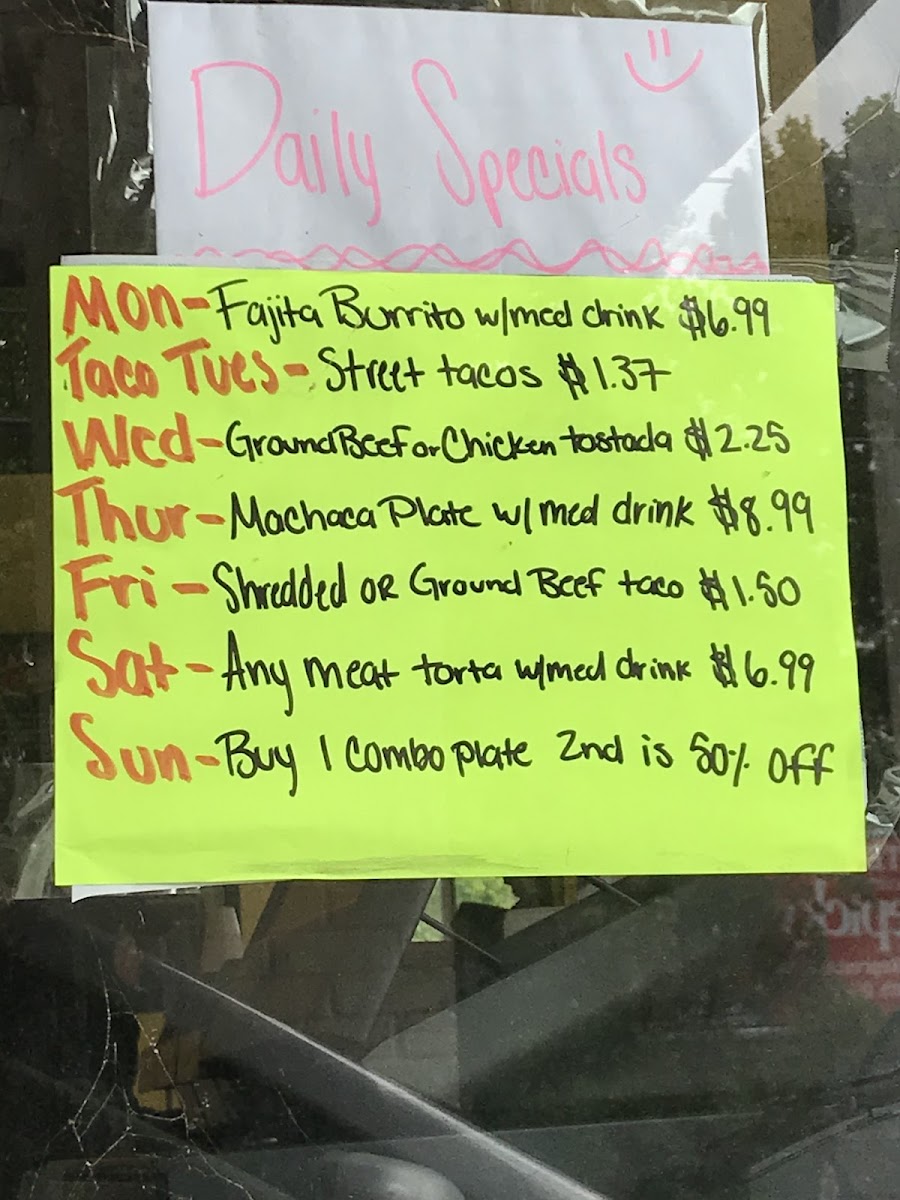 Daily Specials
Mon- Fajita Burrito w/med drink $6.99
Taco Tues- Street tacos $1.37
Wed- Ground Beef or Chicken tostada $2.25
Thur- Machaca Plate w/ med drink $8.99
Fri- Shredded OR Ground Beef taco $1.50
Sat- Any meat torta w/med drink $6.99
Sun- Buy 1 Combo plate 2nd is 50% off